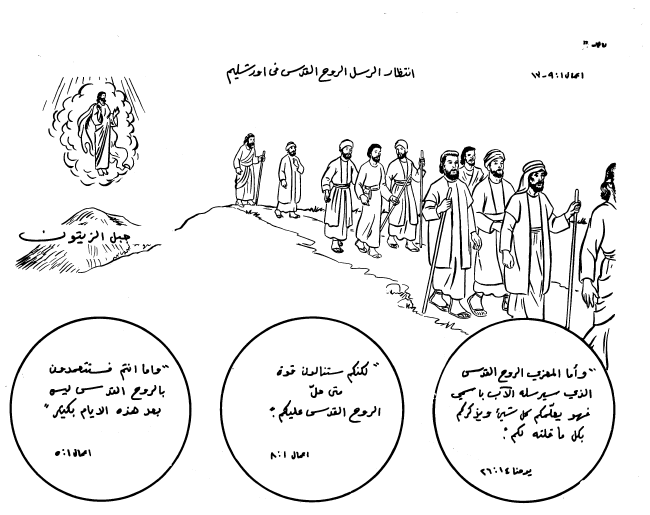 انتظار الرسل الروح القدس فى اورشليم
اعمال ١ : ٩-١٢
جبل الزيتون
"وأما المعزي الروح القدس
الذي سيرسله الآب باسمي
فهو يعلّمكم كل شيء ويذكركم
بكل ما قلته لكم"
يوحنا ١٤ : ٢٦
"لكنكم ستنالون قوة
متى حلّ
الروح القدس عليكم"
اعمال ١ : ٨
"واما انتم فستتعمدون
بالروح القدس ليس
بعد هذه الايام بكثير"
اعمال ١ : ٥